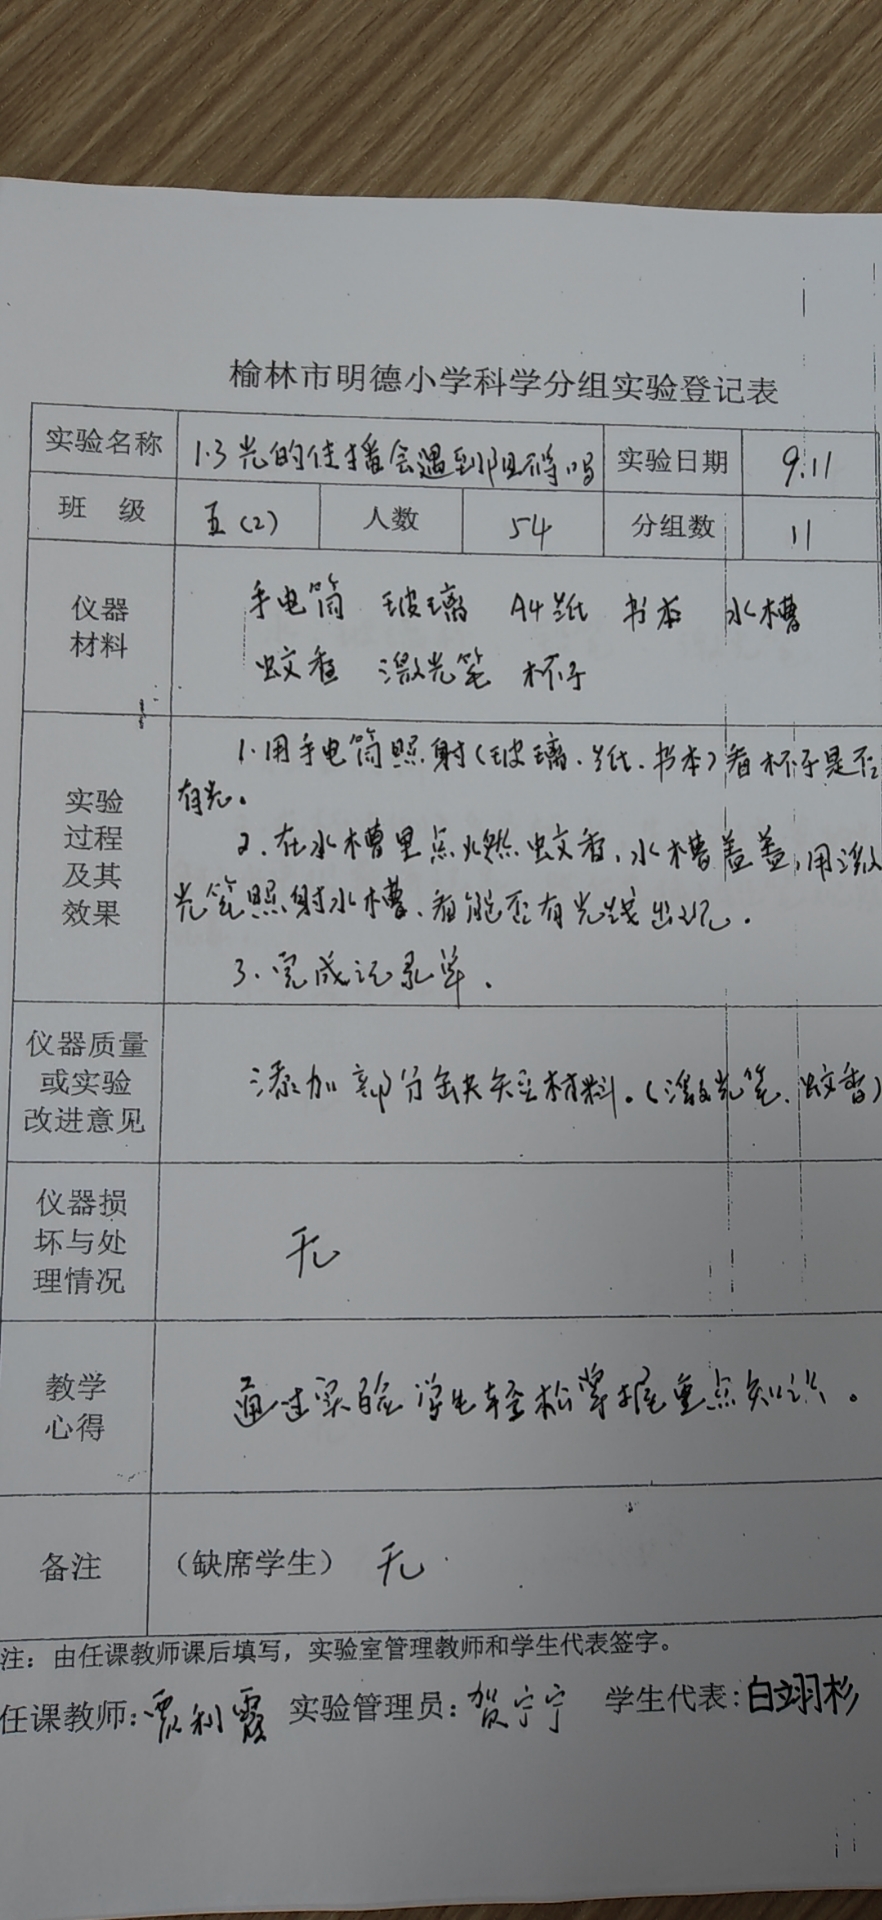 榆林市明德小学科学分组实验登记表
实验名称 1.3光的传播会遇到阻碍吗 实验日期 9.11
班 级 五(2) 人数 54 分组数 11
仪器材料 手电筒 玻璃 A4纸 书本 水槽
蚊香 激光笔 杯子
实验过程及其效果 1.用手电筒照射(玻璃、纸、书本)看杯子是否
有光。
2.在水槽里点燃蚊香,水槽盖盖,用激
光笔照射水槽、看能否有光线出现.
3.完成记录单.
仪器质量或实验改进意见 添加部分缺失材料。(激光笔、蚊香)
仪器损坏与处理情况 无
教学心得 通过实验学生轻松掌握重点知识。
备注 (缺席学生) 无
注：由任课教师课后填写，实验室管理教师和学生代表签字。
任课教师: 利霞 实验管理员: 贺宁宁 学生代表: 白翊杉